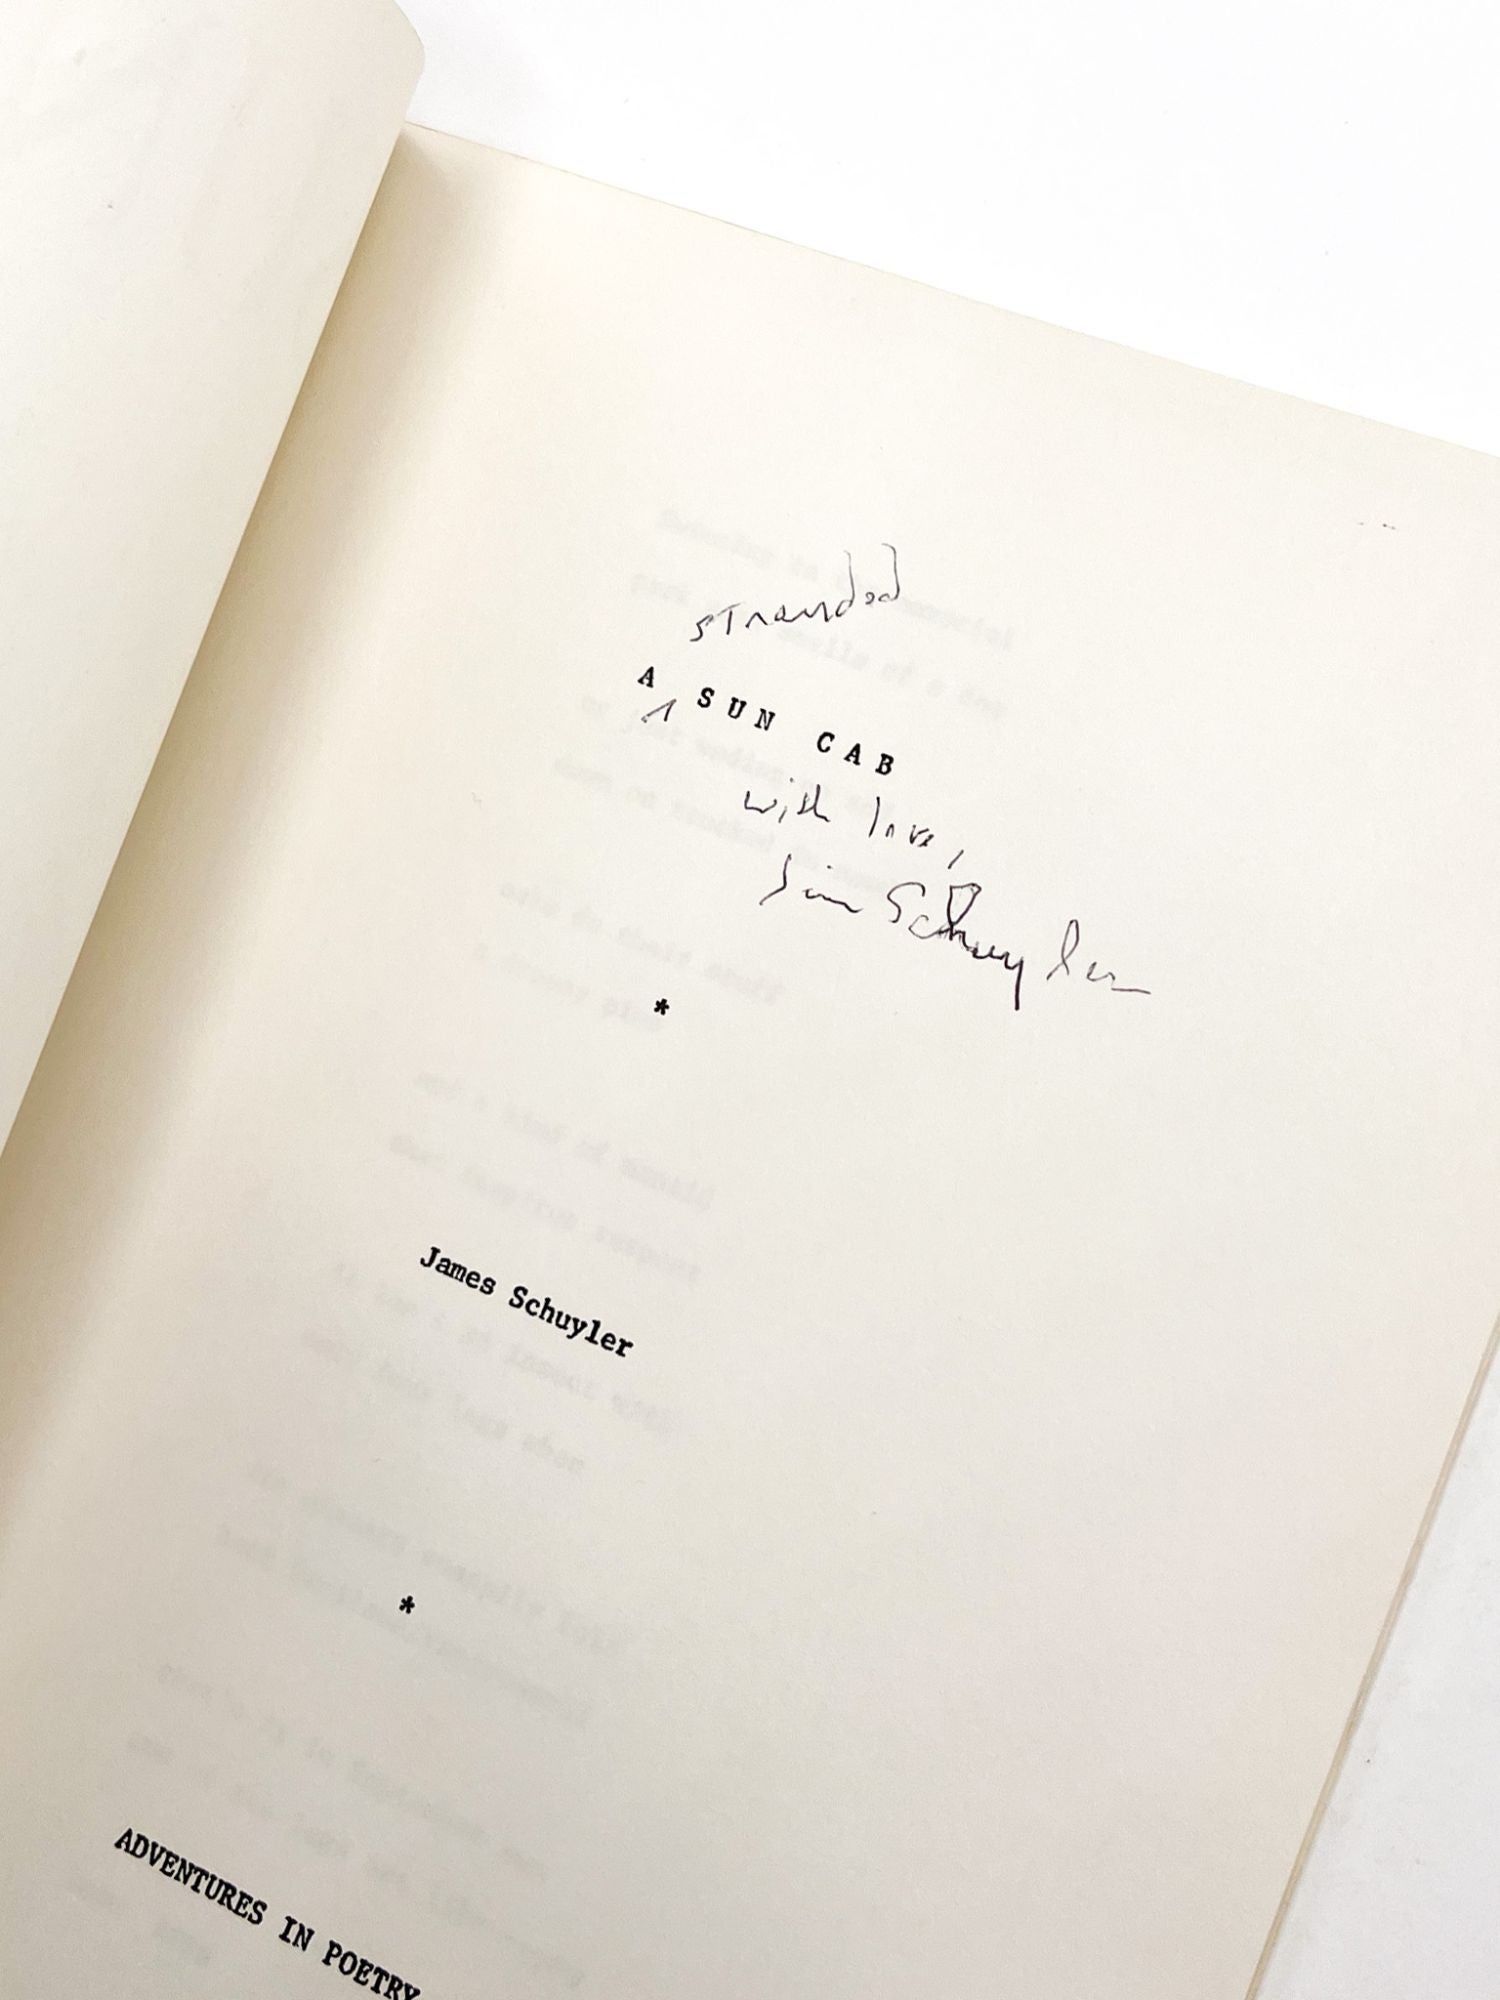 stranded
A SUN CAB
with love,
Jim Schuyler
*
James Schuyler
*
ADVENTURES IN POETRY